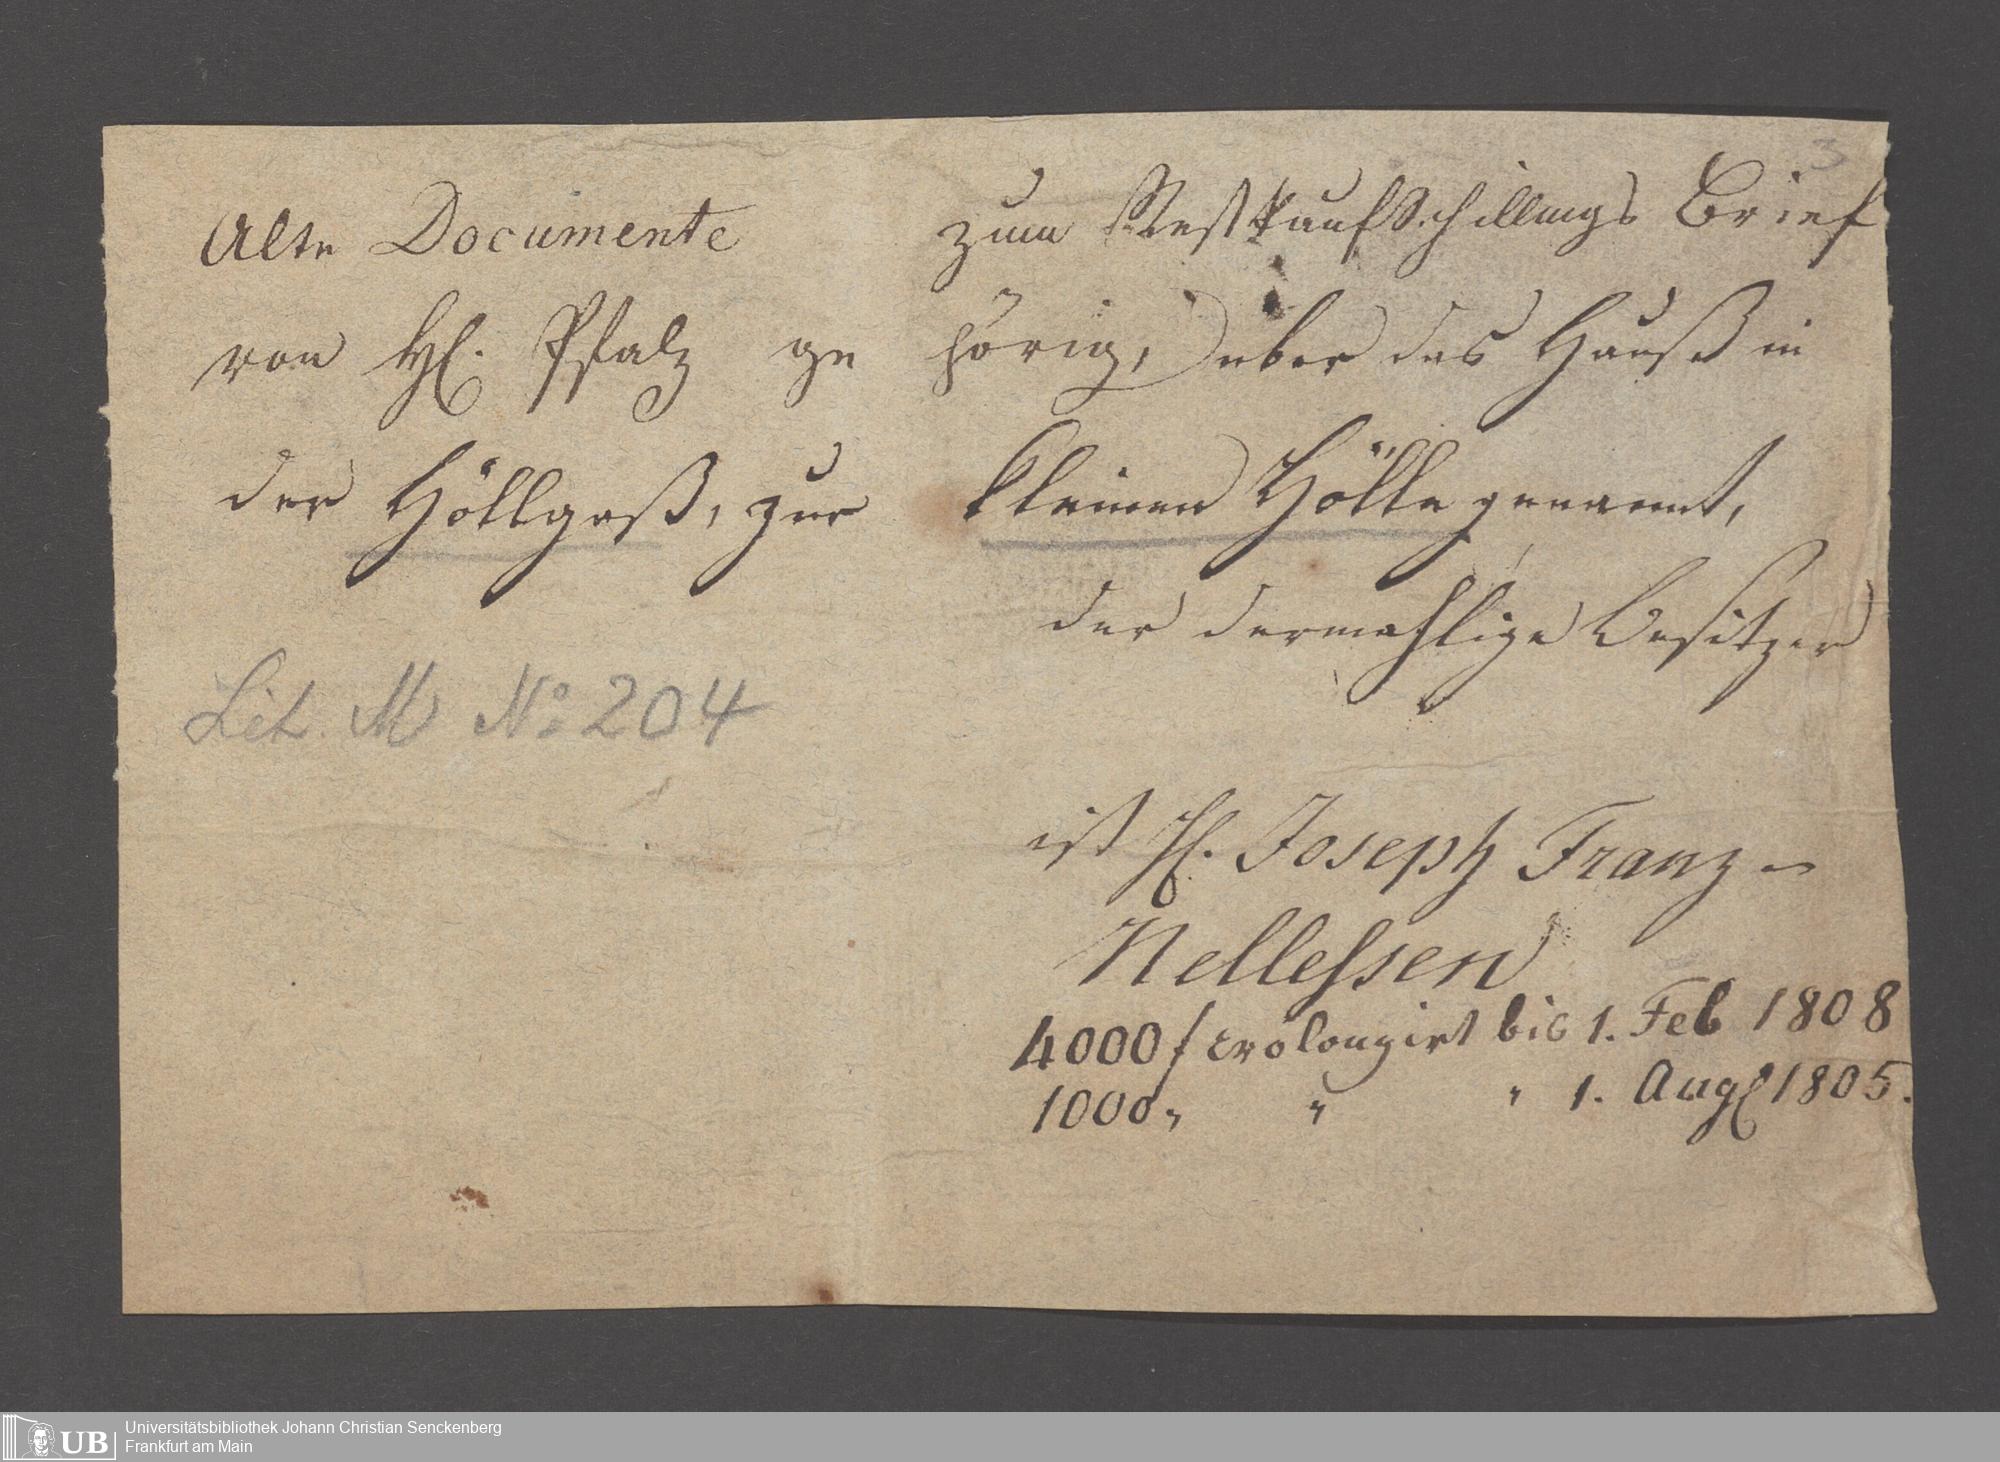 3
Alte Documente zum Restkaufschillings Brief
von H. Pfalz gehörig, über das Hauß in
der Höllgaß, zur kleinen Hölle genannt,
der dermahlige Besitzer
Lit. M No 204
ist H. Joseph Franz
Nellessen
4000 f prolongirt bis 1. Feb 1808
1000 " " " 1. Aug 1805.
Universitätsbibliothek Johann Christian Senckenberg
Frankfurt am Main
UB